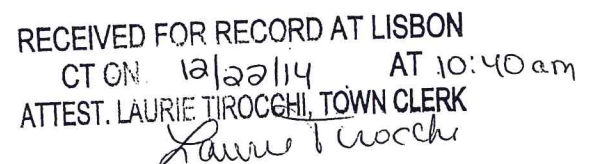 RECEIVED FOR RECORD AT LISBON
CT ON 12/22/14 AT 10:40am
ATTEST. LAURIE TIROCCHI, TOWN CLERK
Laurie Tirocchi